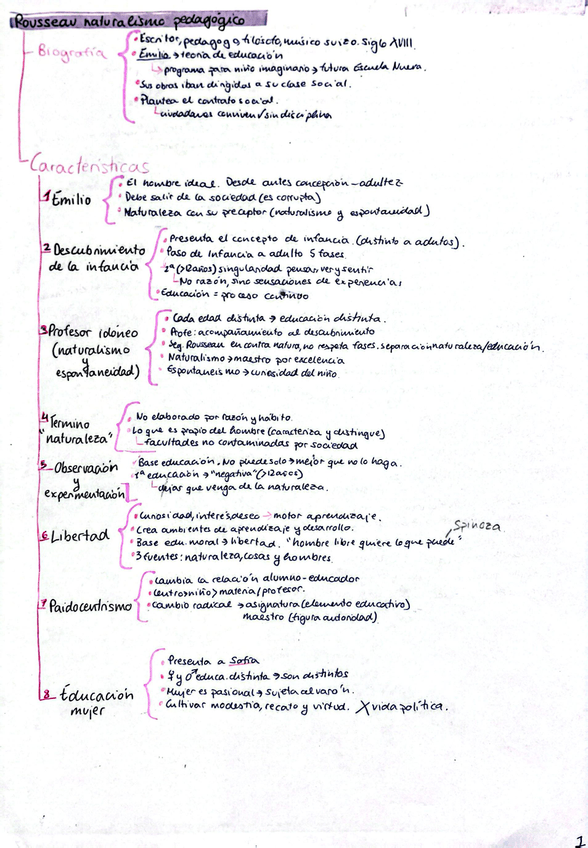 Rousseau naturalismo pedagógico
Biografía
• Escritor, pedagogo, filósofo, músico suizo. Siglo XVIII.
• Emilio → teoría de educación
↳ programa para niño imaginario → futura Escuela Nueva.
• Sus obras iban dirigidos a su clase social.
• Plantea el contrato social.
ciudadanos conviven/sin disciplina
Características
1 Emilio
• El hombre ideal. Desde antes concepción - adultez
• Debe salir de la sociedad (es corrupta)
• Naturaleza con su preceptor (naturalismo y espontaneidad)
2 Descubrimiento de la infancia
• Presenta el concepto de infancia. (distinto a adultos).
• Paso de infancia a adulto 5 fases.
2ª (>12años) singularidad pensar, ver y sentir
No razón, sino sensaciones de experiencias
• Educación = proceso continuo
3 Profesor idóneo (naturalismo y espontaneidad)
• Cada edad distinta → educación distinta.
• Profe: acompañamiento al descubrimiento
• Seg. Rousseau en contra natura, no respeta fases. separación naturaleza/educación.
• Naturalismo → maestro por excelencia
• Espontaneismo → curiosidad del niño
4 Término "naturaleza"
• No elaborado por razón y hábito.
• Lo que es propio del hombre (caracteriza y distingue)
facultades no contaminadas por sociedad
5 Observación y experimentación
• Base educación. No puede solo → mejor que no lo haga.
• 1ª educación → "negativa" (>12años)
dejas que venga de la naturaleza.
6 Libertad
• Curiosidad, interés, deseo → motor aprendizaje.
• Crea ambientes de aprendizaje y desarrollo.
Spinoza
• Base edu. moral → libertad. "hombre libre quiere lo que puede"
• 3 fuentes: naturaleza, cosas y hombres
7 Paidocentrismo
• Cambia la relación alumno-educador
• Centro > niño > materia/profesor.
• Cambio radical → asignatura (elemento educativo)
maestro (figura autoridad)
8 Educación mujer
• Presenta a Sofía
• ♀ y ♂ educa. distinta → son distintos
• Mujer es pasional → sujeta al varón.
• Cultivar modestia, recato y virtud. X vida política.
1